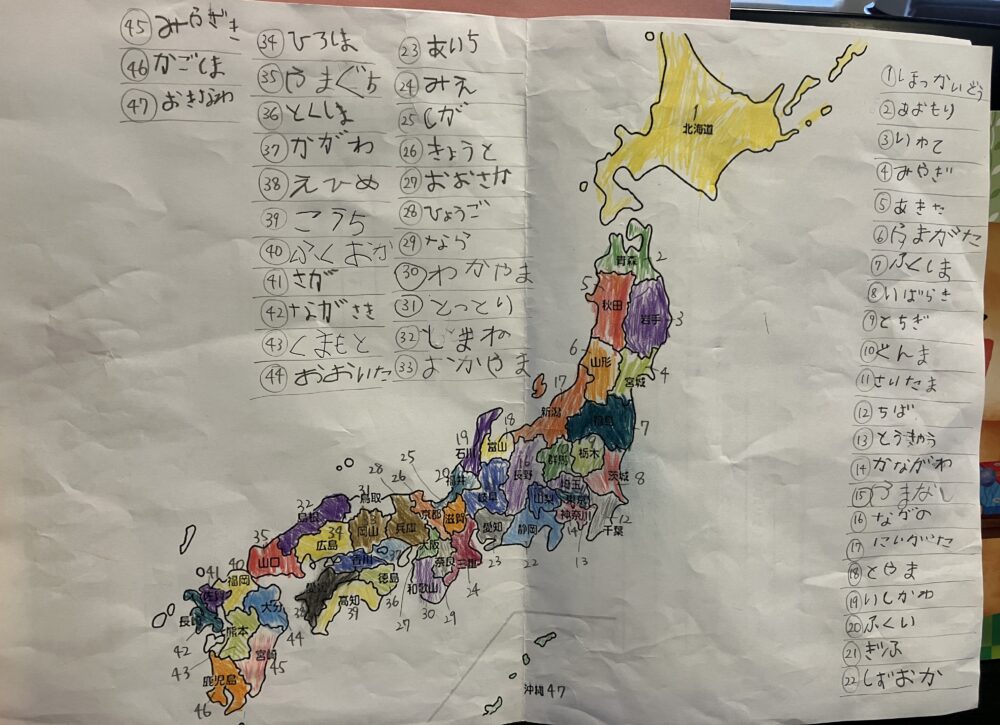 ① ほっかいどう
② あおもり
③ いわて
④ みやぎ
⑤ あきた
⑥ やまがた
⑦ ふくしま
⑧ いばらき
⑨ とちぎ
⑩ ぐんま
⑪ さいたま
⑫ ちば
⑬ とうきょう
⑭ かながわ
⑮ やまなし
⑯ ながの
⑰ にいがた
⑱ とやま
⑲ いしかわ
⑳ ふくい
㉑ ぎふ
㉒ しずおか
㉓ あいち
㉔ みえ
㉕ しが
㉖ きょうと
㉗ おおさか
㉘ ひょうご
㉙ なら
㉚ わかやま
㉛ とっとり
㉜ しまね
㉝ おかやま
㉞ ひろしま
㉟ やまぐち
㊱ とくしま
㊲ かがわ
㊳ えひめ
㊴ こうち
㊵ ふくおか
㊶ さが
㊷ ながさき
㊸ くまもと
㊹ おおいた
㊺ みやざき
㊻ かごしま
㊼ おきなわ
1
北海道
青森 2
5 秋田
岩手 3
6 山形
宮城 4
17 新潟
福島 7
18 富山
19 石川
福井
長野
群馬
栃木
茨城 8
埼玉
東京
山梨
神奈川
14
千葉 12
13
岐阜
静岡 22
愛知 23
三重 24
滋賀 25
京都 26
大阪 27
兵庫 28
奈良 29
和歌山 30
鳥取 31
島根 32
岡山
広島 34
山口 35
徳島 36
香川 37
高知 39
福岡 40
佐賀 41
長崎 42
熊本 43
大分 44
宮崎 45
鹿児島 46
沖縄 47